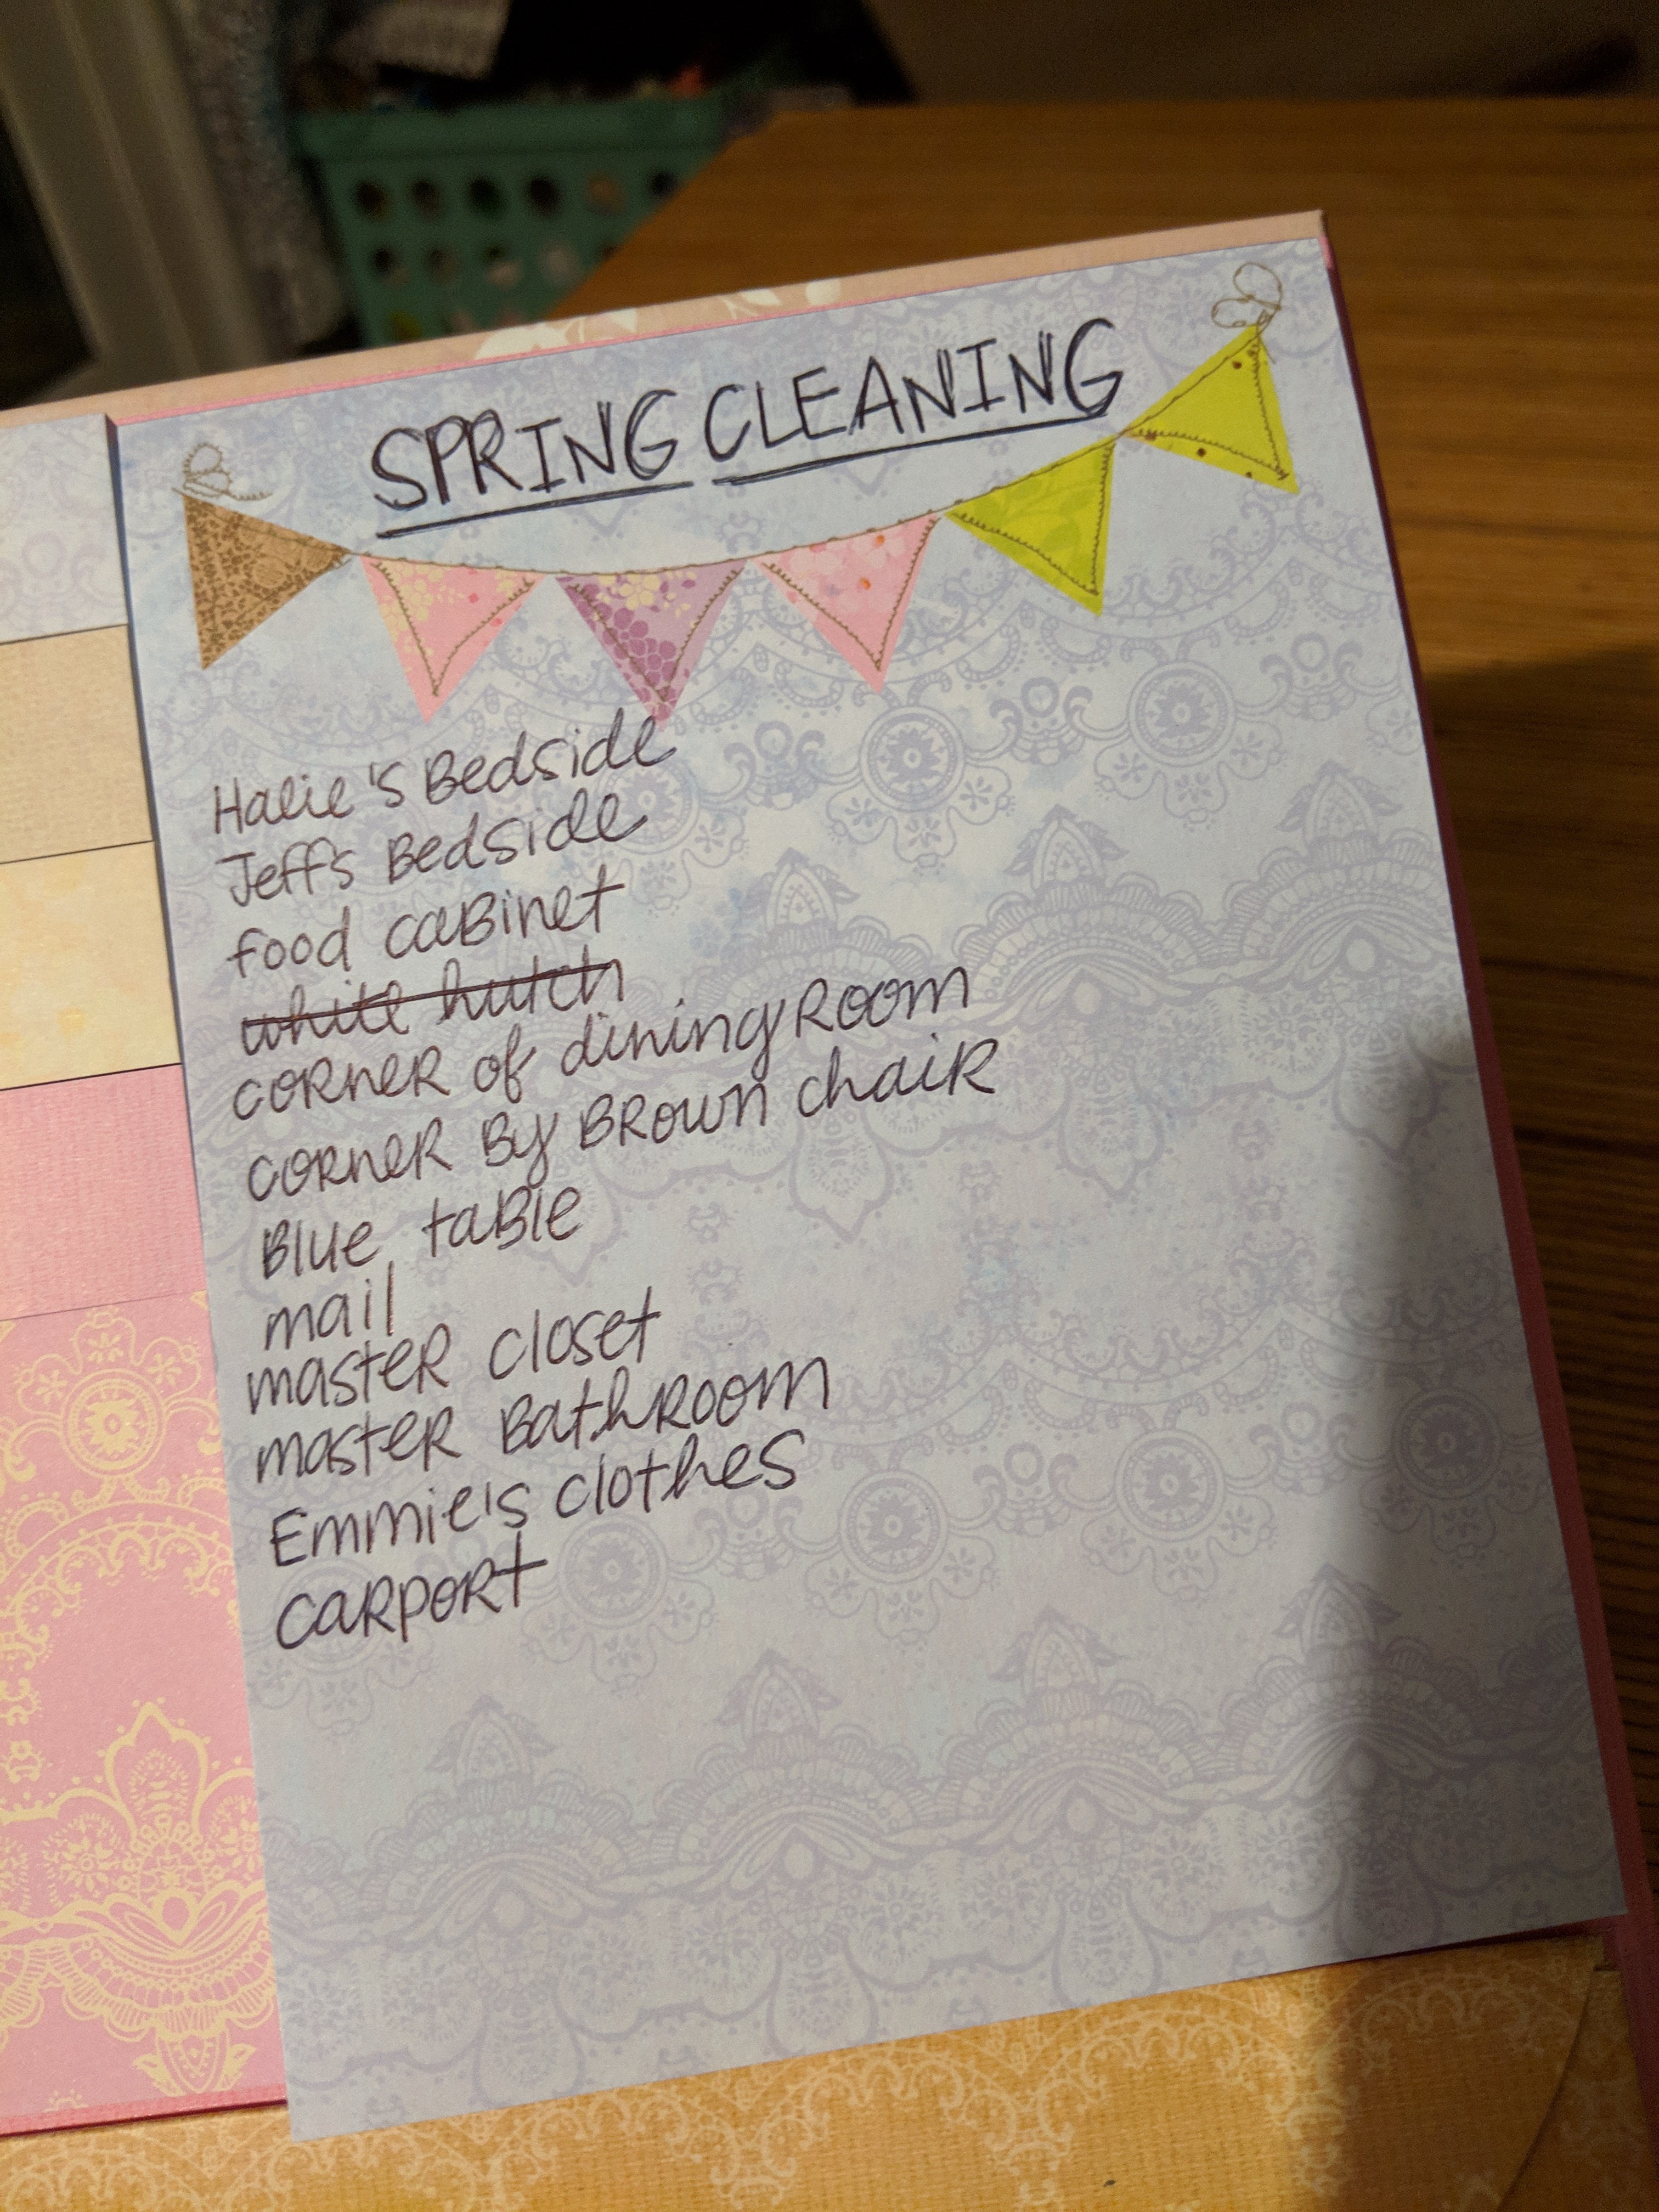 SPRING CLEANING
Halie's Bedside
Jeff's Bedside
food caBinet
white hutch
coRneR of dining Room
coRneR By BRown chaiR
Blue taBle
mail
masteR closet
masteR BathRoom
Emmie's clothes
caRpoRt